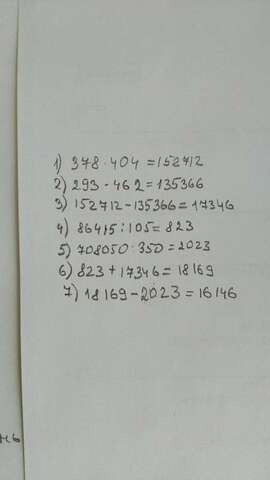 1) 378 · 404 = 152712
2) 293 · 462 = 135366
3) 152712 - 135366 = 17346
4) 86415 : 105 = 823
5) 708050 : 350 = 2023
6) 823 + 17346 = 18169
7) 18169 - 2023 = 16146